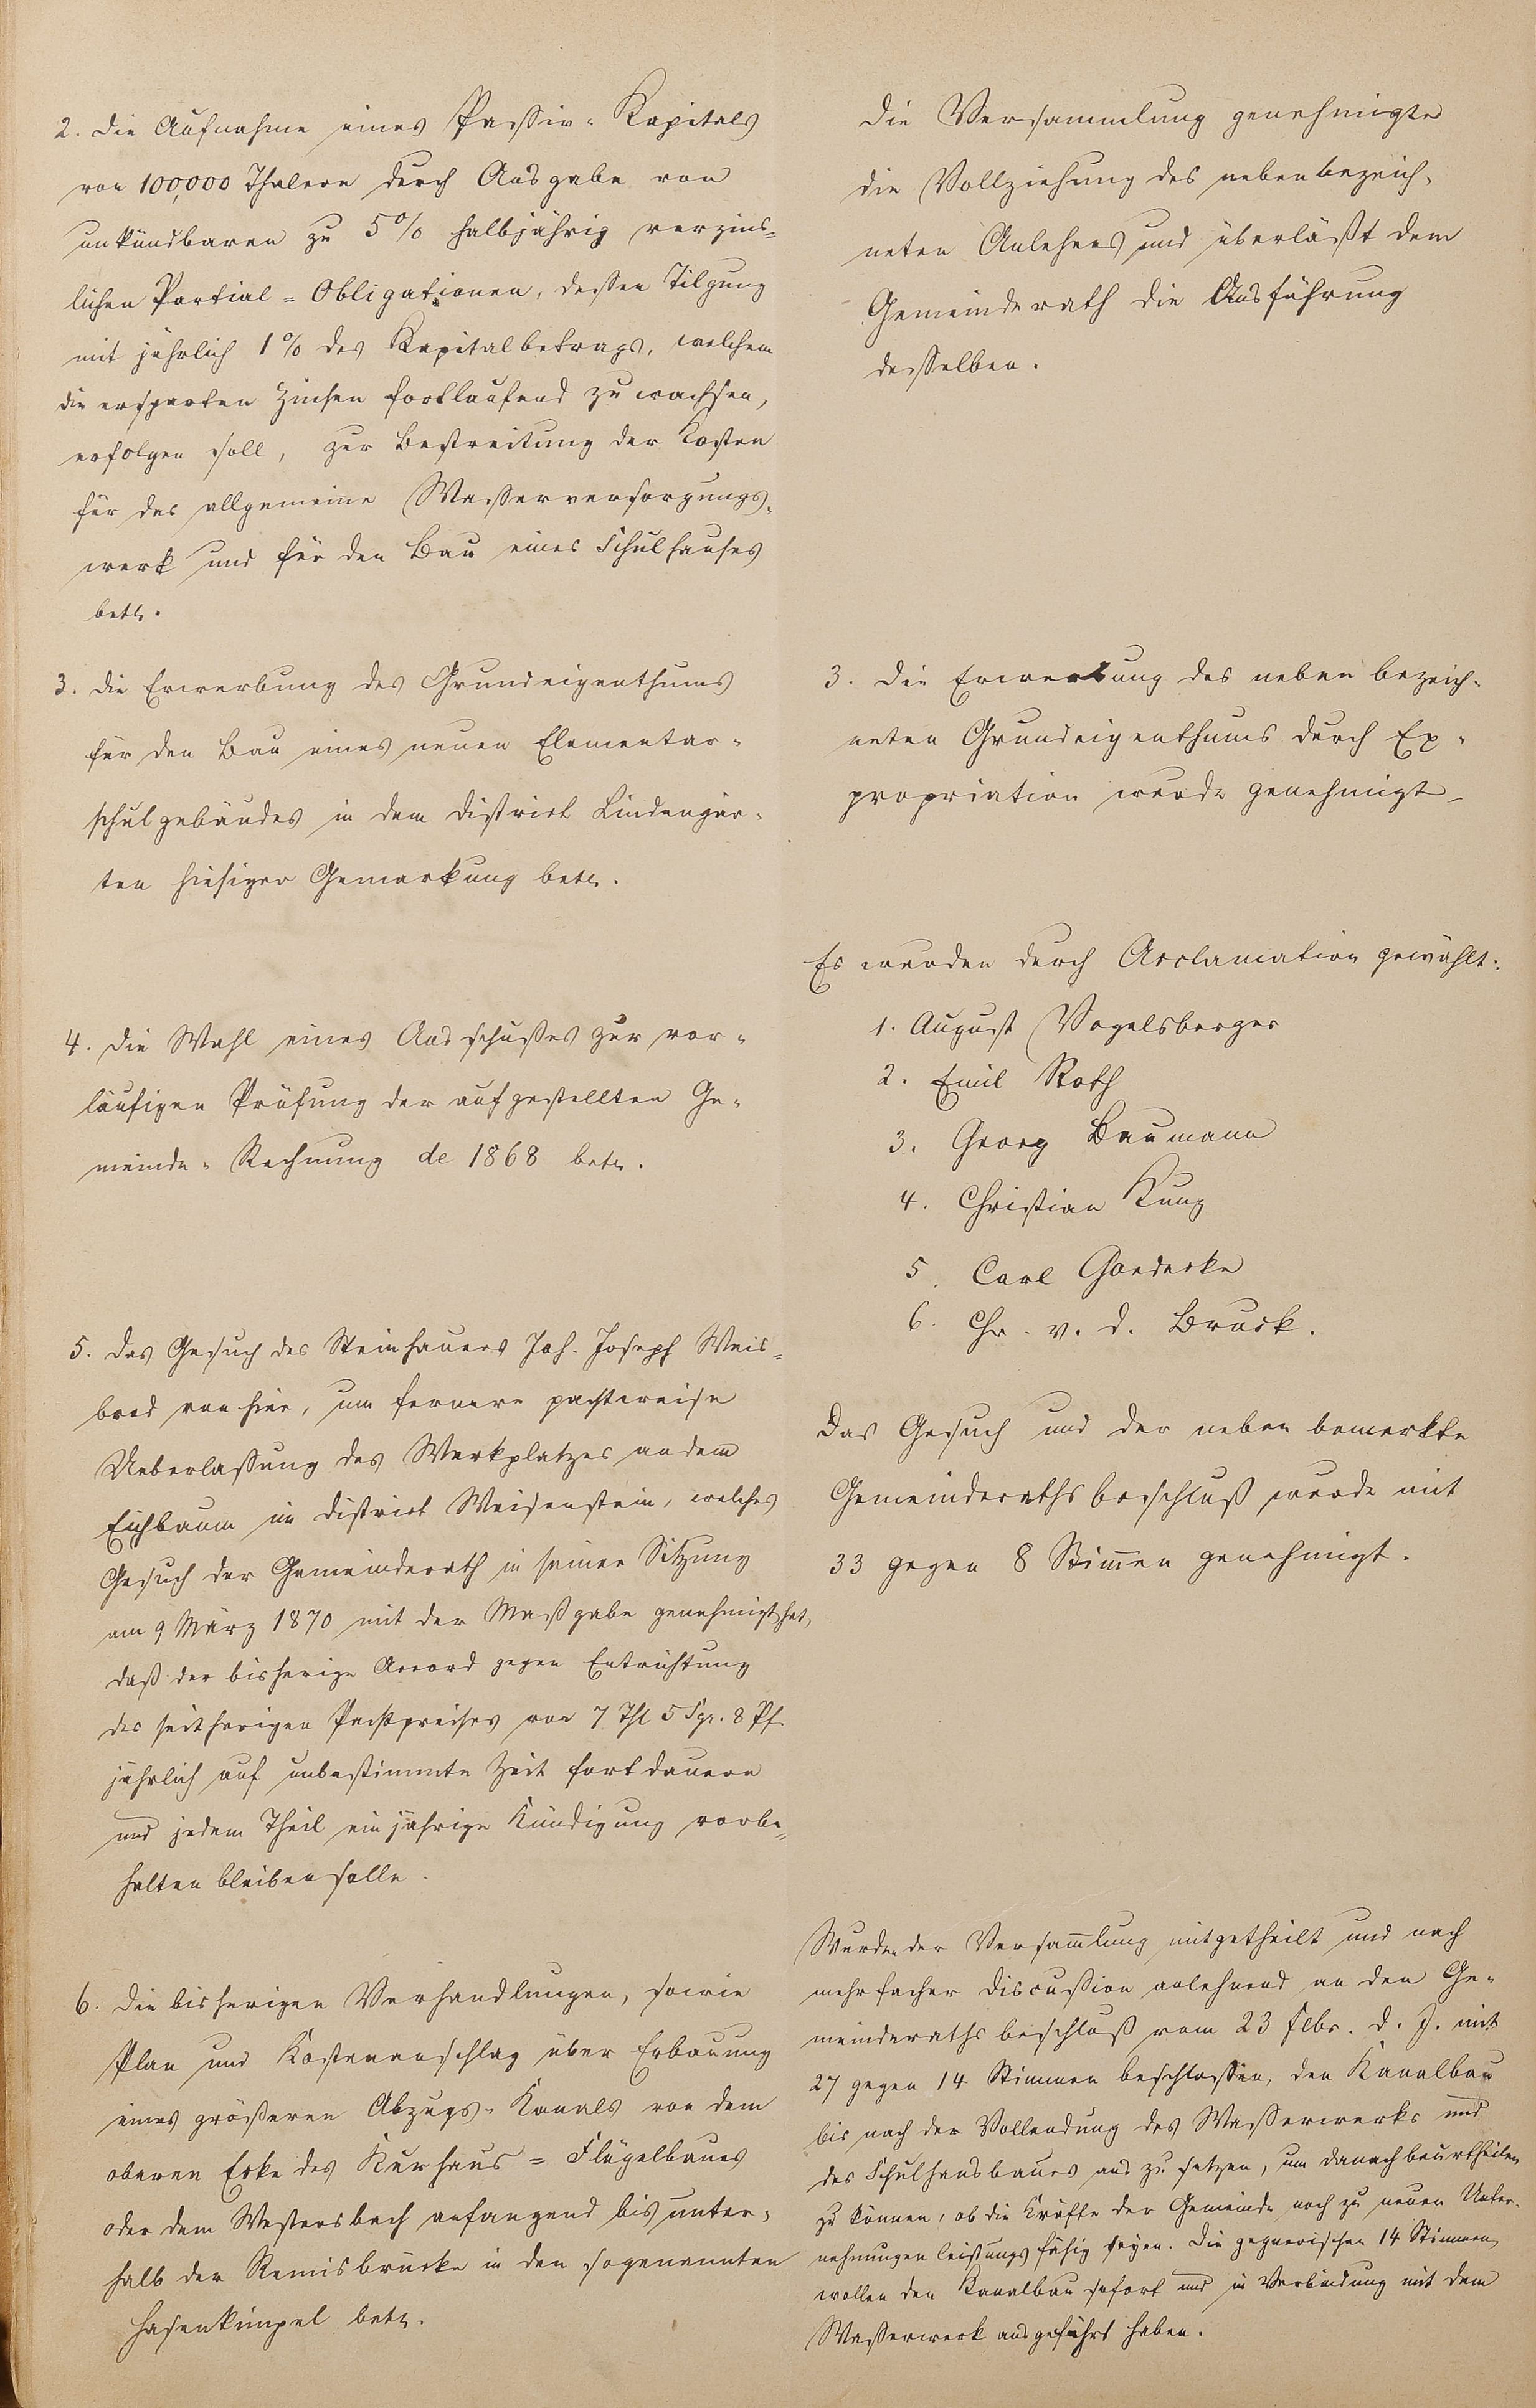 2. Die Aufnahme eines Passiv-Kapitals
von 100,000 Thalern durch Ausgabe von
unkündbaren zu 5% halbjährig verzins=
lichen Partial=Obligationen, dessen Tilgung
mit jährlich 1% des Kapitalbetrags, welchem
die ersparten Zinsen fortlaufend zu wachsen,
erfolgen soll, zur Bestreitung der Kosten
für das allgemeine Wasserversorgungs-
werk und für den Bau eines Schulhauses
betr.
3. Die Erwerbung des Grundeigenthums
für den Bau eines neuen Elementar-
schulgebäudes in dem District Lindengär-
ten hiesiger Gemarkung betr.
4. Die Wahl eines Ausschußes zur vor-
läufigen Prüfung der aufgestellten Ge-
meinde-Rechnung de 1868 betr.
5. Das Gesuch des Steinhauers Joh. Joseph Weis=
brod von hier, um fernere pachtweise
Ueberlassung des Werkplatzes an dem
Eichbaum im District Weisenstein, welches
Gesuch der Gemeinderath in seiner Sitzung
am 9 März 1870 mit der Maßgabe genehmigt hat,
daß der bisherige Accord gegen Entrichtung
des seitherigen Pachtpreises von 7 Thl 5 Sgr. 8 Pf.
jährlich auf unbestimmte Zeit fortdauern
und jedem Theil einjährige Kündigung vorbe=
halten bleiben solle.
6. Die bisherigen Verhandlungen, sowie
Plan und Kostenanschlag über Erbauung
eines größeren Abzugs-Kanals von dem
oberen Ecke des Kurhaus=Flügelbaues
oder dem Westersbach anfangend bis unter-
halb der Remisbrücke in den sogenannten
Hasenkümpel betr.
Die Versammlung genehmigte
die Vollziehung des nebenbezeich-
neten Anlehens und überläßt dem
Gemeinderath die Ausführung
desselben.
3. Die Erwerbung des neben bezeich-
neten Grundeigenthums durch Ex-
propriation wurde genehmigt
Es wurden durch Acclamation gewählt:
1. August Vogelsberger
2. Emil Roth
3. Georg Baumann
4. Christian Kunz
5. Carl Goedecke
6. Chr. v. d. Bruck.
Das Gesuch und der neben bemerkte
Gemeinderathsbeschluß wurde mit
33 gegen 8 Stimmen genehmigt.
Wurden der Versammlung mitgetheilt und nach
mehrfacher Discussion anlehnend an den Ge-
meinderathsbeschluß vom 23 Febr. d. J. mit
27 gegen 14 Stimmen beschlossen, den Kanalbau
bis nach der Vollendung des Wasserwerks und
des Schulhausbaues aus zu setzen, um danach beurtheilen
zu können, ob die Kräfte der Gemeinde noch zu neuen Unter-
nehmungen leistungsfähig seyen. Die gegnerischen 14 Stimmen,
wollen den Kanalbau sofort und in Verbindung mit dem
Wasserwerk ausgeführt haben.